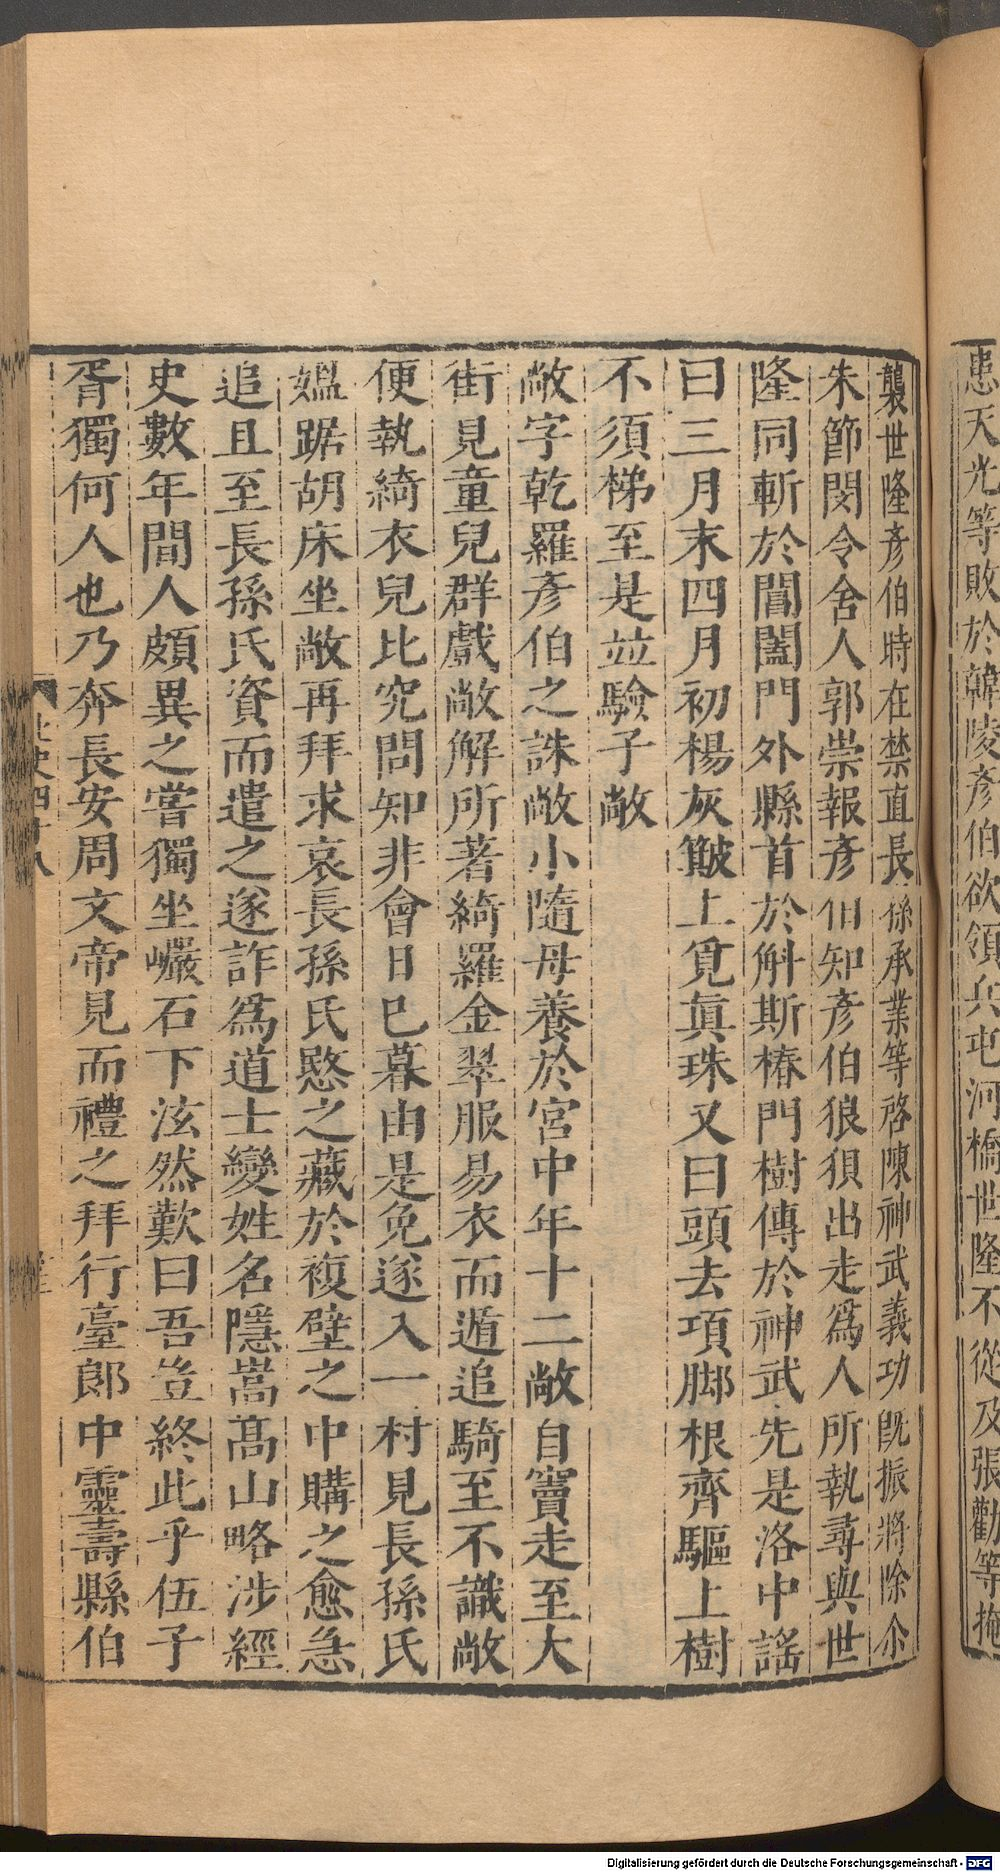 患天光等敗於韓陵彥伯欲領兵屯河橋世隆不從及張勸等掩
襲世隆彥伯時在禁直長孫承業等啓陳神武義功旣振將除尒
朱節閔令舍人郭崇報彥伯知彥伯狼狽出走爲人所執尋與世
隆同斬於閶闔門外縣首於斛斯椿門樹傳於神武先是洛中謠
曰三月末四月初楊灰簸上覓眞珠又曰頭去項脚根齊驅上樹
不須梯至是並驗子敞
敞字乾羅彥伯之誅敞小隨母養於宮中年十二敞自竇走至大
街見童兒群戲敞解所著綺羅金翠服易衣而遁追騎至不識敞
便執綺衣兒比究問知非會日已暮由是免遂入一村見長孫氏
媪踞胡床坐敞再拜求哀長孫氏愍之藏於複壁之中購之愈急
追且至長孫氏資而遣之遂詐爲道士變姓名隱嵩高山略涉經
史數年間人頗異之嘗獨坐巖石下泫然歎曰吾豈終此乎伍子
胥獨何人也乃奔長安周文帝見而禮之拜行臺郎中靈壽縣伯
北史四十八
Digitalisierung gefördert durch die Deutsche Forschungsgemeinschaft - DFG